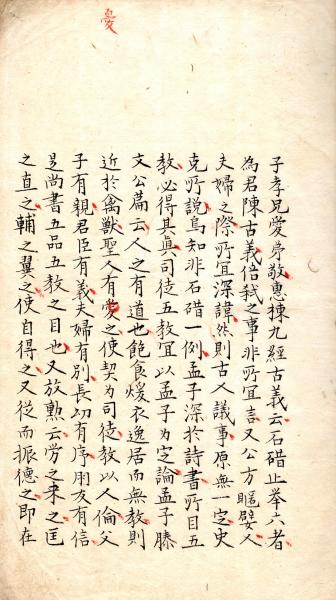 憂
子孝兄愛弟敬惠棟九經古義云石碏止舉六者
為君陳古義倍我之事非所宜言又公方暱嬖人
夫婦之際所宜深諱然則古人議事原無一定史
克所說焉知非石碏一例孟子深於詩書所目五
教必得其真司徒五教宜以孟子為定論孟子滕
文公篇云人之有道也飽食煖衣逸居而無教則
近於禽獸聖人有憂之使契為司徒教以人倫父
子有親君臣有義夫婦有別長幼有序朋友有信
是尚書五品五教之目也又放勳云勞之來之匡
之直之輔之翼之使自得之又從而振德之即在